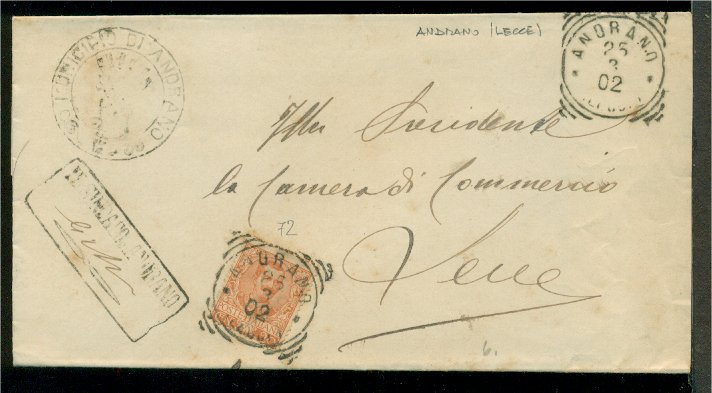 ANDRANO (LECCE)
MUNICIPIO DI ANDRANO
ANDRANO
25
3
02
(LECCE)
Illmo Presidente
la Camera di Commercio
Lecce
72
IL SINDACO ANDRANO
ANDRANO
25
3
02
(LECCE)
6.